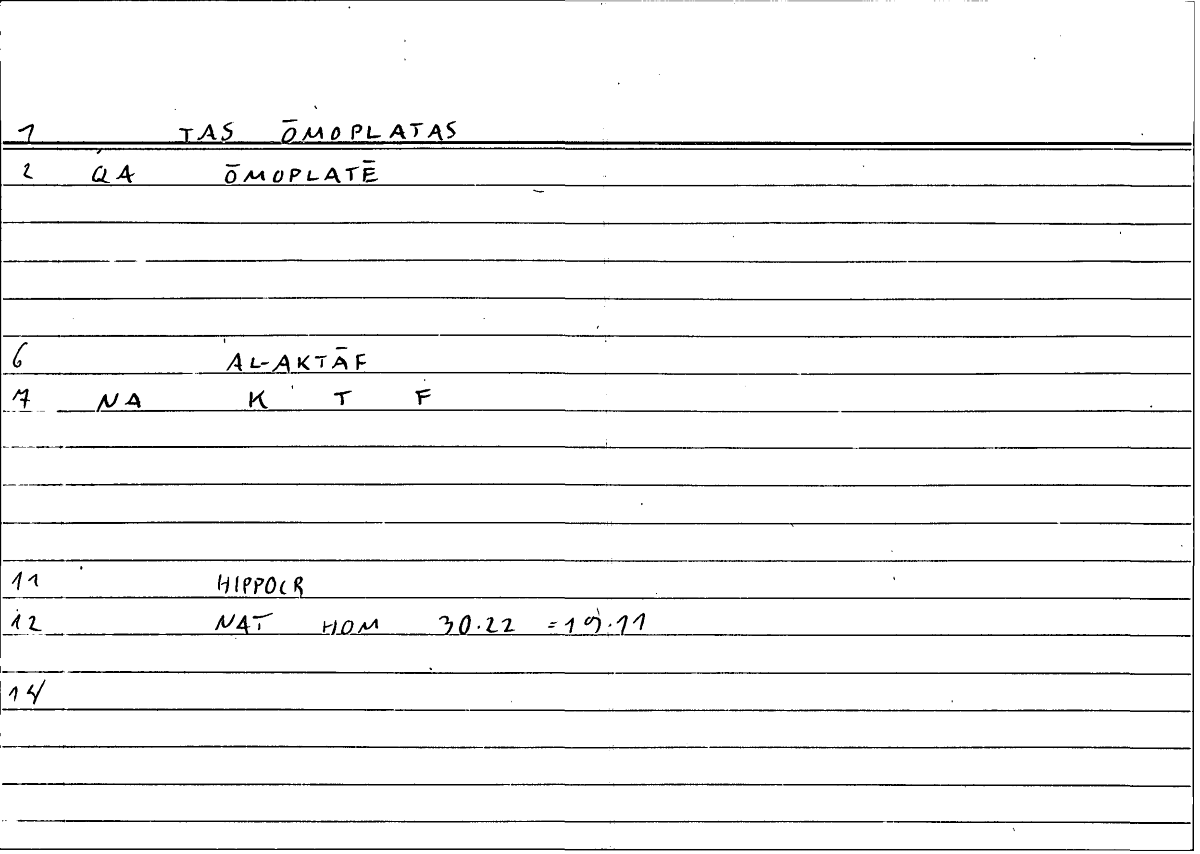 1 TAS ŌMOPLATAS
2 QA ŌMOPLATĒ
6 AL-AKTĀF
7 NA K T F
11 HIPPOCR
12 NAT HOM 30.22 =19.11
14